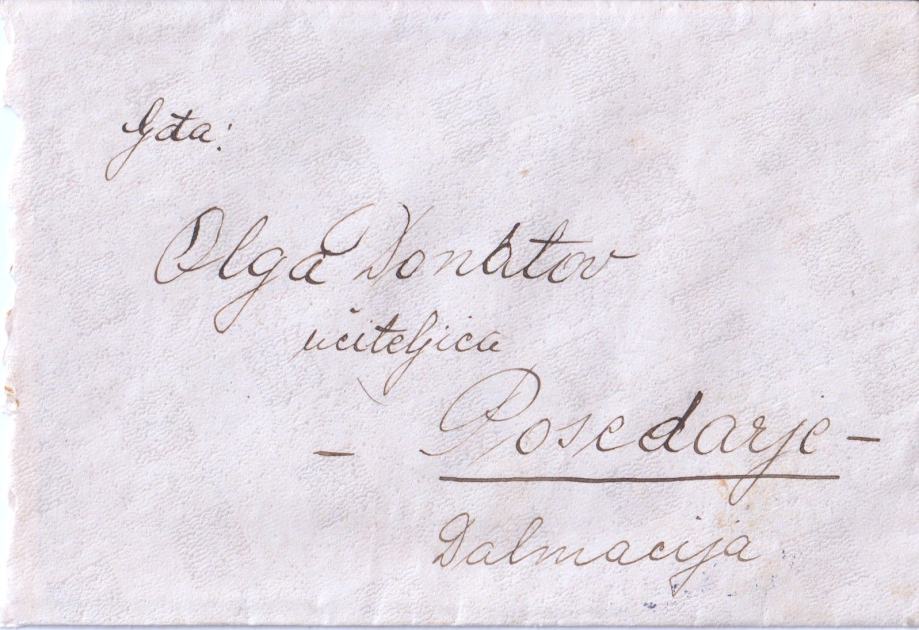 Gđa:
Olga Donatov
učiteljica
- Posedarje -
Dalmacija